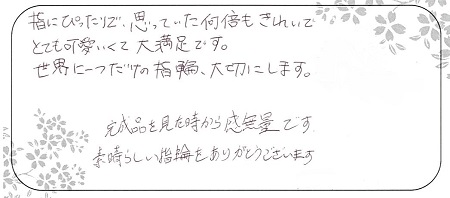 指にぴったりで、思っていた何倍もきれいで
とても可愛いくて大満足です。
世界に一つだけの指輪、大切にします。
完成品を見た時から感無量です
素晴らしい指輪をありがとうございます